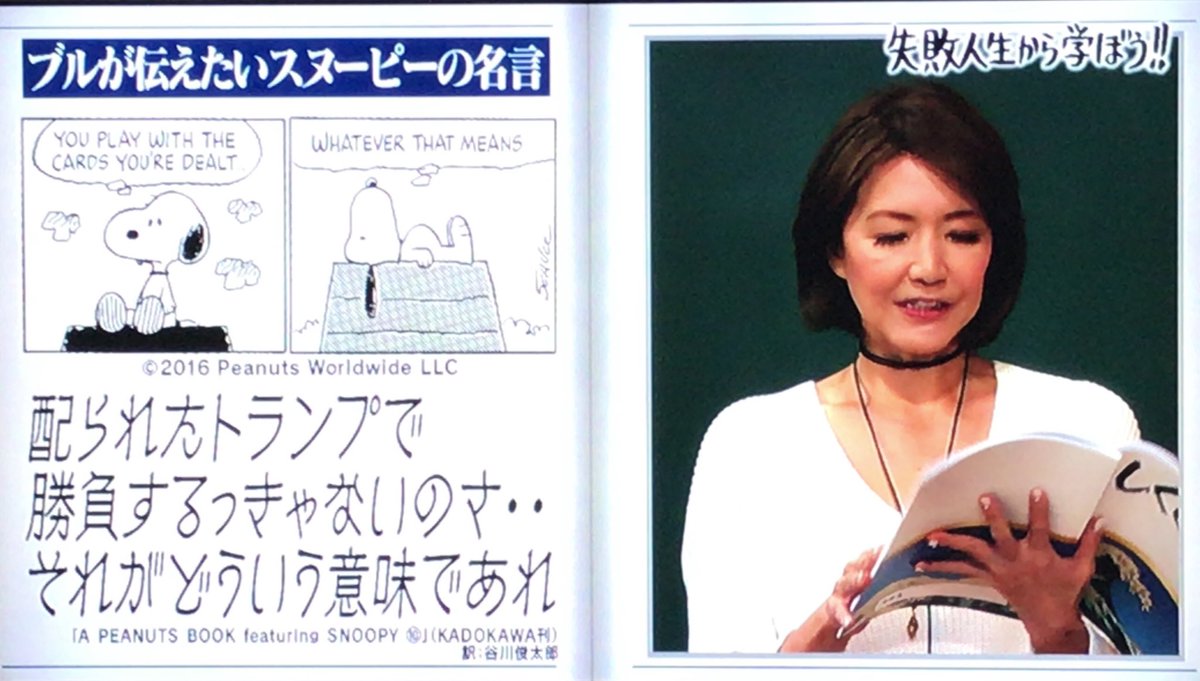 ブルが伝えたいスヌーピーの名言
YOU PLAY WITH THE
CARDS YOU'RE DEALT..
WHATEVER THAT MEANS
SCHULZ
©2016 Peanuts Worldwide LLC
配られたトランプで
勝負するっきゃないのサ‥
それがどういう意味であれ
「A PEANUTS BOOK featuring SNOOPY ⑩」(KADOKAWA刊)
訳:谷川俊太郎
失敗人生から学ぼう!!